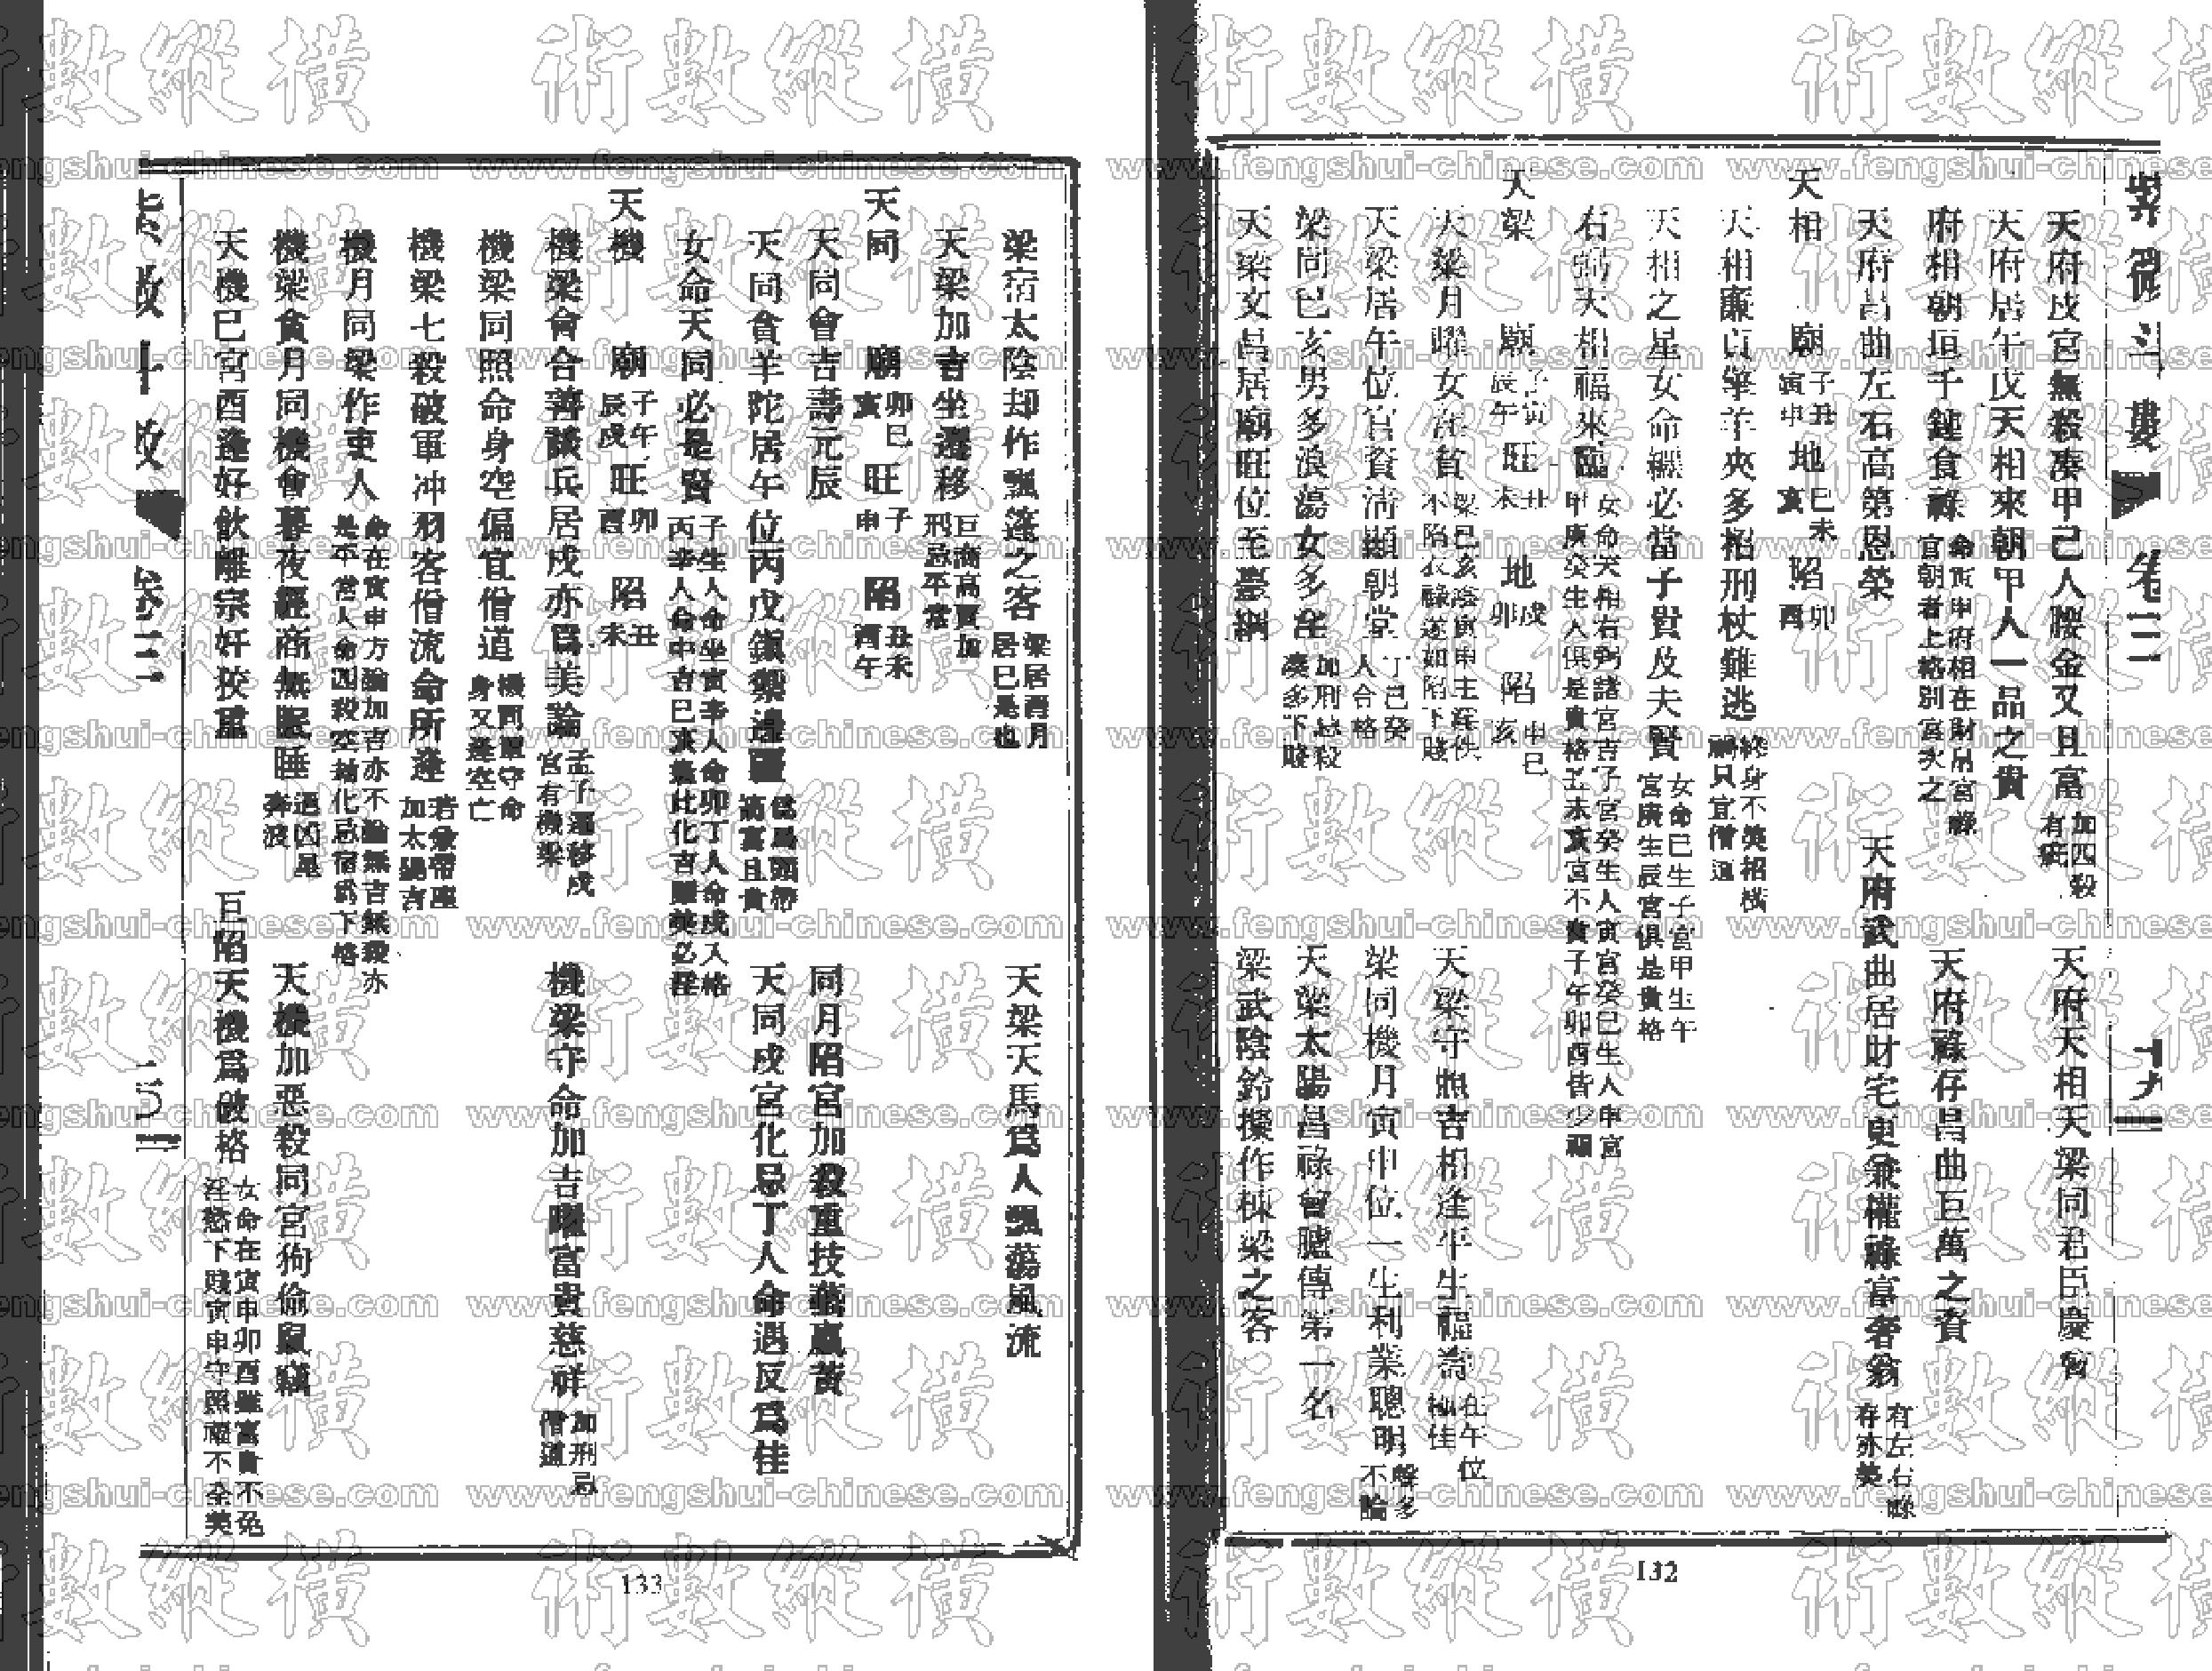 天府戌宮無殺湊甲己人腰金又且富 加四殺有疵 天府天相天梁同君臣慶會
天府居午戌天相來朝甲人一品之貴
府相朝垣千鍾食祿 命寅申府相在財帛宮 官朝者上格別宮次之 天府祿存昌曲巨萬之資
天府昌曲左右高第恩榮 天府武曲居財宅更兼權祿富奢翁 有左右 存亦美
天相 廟 子丑寅申 地 巳未亥 陷 卯酉
天相廉貞擎羊夾多招刑杖難逃 終身不美招橫禍只宜僧道
天相之星女命纏必當子貴及夫賢 女命己生子宮甲生午宮庚生辰宮俱是貴格
右弼天相福來臨 女命天相右弼諸宮吉子宮癸生人寅宮癸己生人申宮甲庚癸生人俱是貴格丑未亥宮不貴子午卯酉皆少福
天梁 廟 子寅辰午 旺 丑未 地 戌卯 陷 申巳亥
天梁月曜女淫貧 梁巳亥陰寅申主淫佚不陷衣祿遂如陷下賤 天梁守照吉相逢平生福壽 在午位極佳
天梁居午位官資清顯朝堂 丁己癸人合格 梁同機月寅申位一生利業聰明 不論
梁同巳亥男多浪蕩女多淫 加刑忌殺湊多下賤 天梁太陽昌祿會臚傳第一名
天梁文昌居廟旺位至臺綱 梁武陰鈴擬作棟梁之客
卷三
十九
132
梁宿太陰却作飄蓬之客 梁居酉月居巳是也 天梁天馬爲人飄蕩風流
天梁加吉坐遷移 巨商高賈加刑忌平常
天同 廟 卯巳亥 旺 子申 陷 丑未酉午
天同會吉壽元辰 同月陷宮加殺重技藝羸黃
天同會羊陀居午位丙戊鎮禦邊疆 富且貴 天同戌宮化忌丁人命遇反爲佳
女命天同必是賢 子生人命坐寅辛人命卯丁人命戌入格丙辛人命申 巳亥 此化吉雖美必淫
天機 廟 子午辰戌 旺 卯酉 陷 丑未
機梁會合善談兵居戌亦爲美論 孟子遷移戌宮有機梁 機梁守命加吉曜富貴慈祥 加刑忌僧道
機梁同照命身空偏宜僧道 機同單守命身又逢空亡
機梁七殺破軍冲羽客僧流命所逢 加太陽吉
機月同梁作吏人 命在寅申方論加吉亦不論無吉無殺亦是平常人命四殺空劫化忌宿爲下格
機梁貪月同機會暮夜經商無眠睡 遇凶星奔波 天機加惡殺同宮狗偷鼠竊
天機巳宮酉逢好飲離宗奸狡重 巨陷天機爲破格 女命在寅申卯酉雖富貴不免淫慾下賤寅申守照福不全美
卷三
133
術數縱橫
www.fengshui-chinese.com